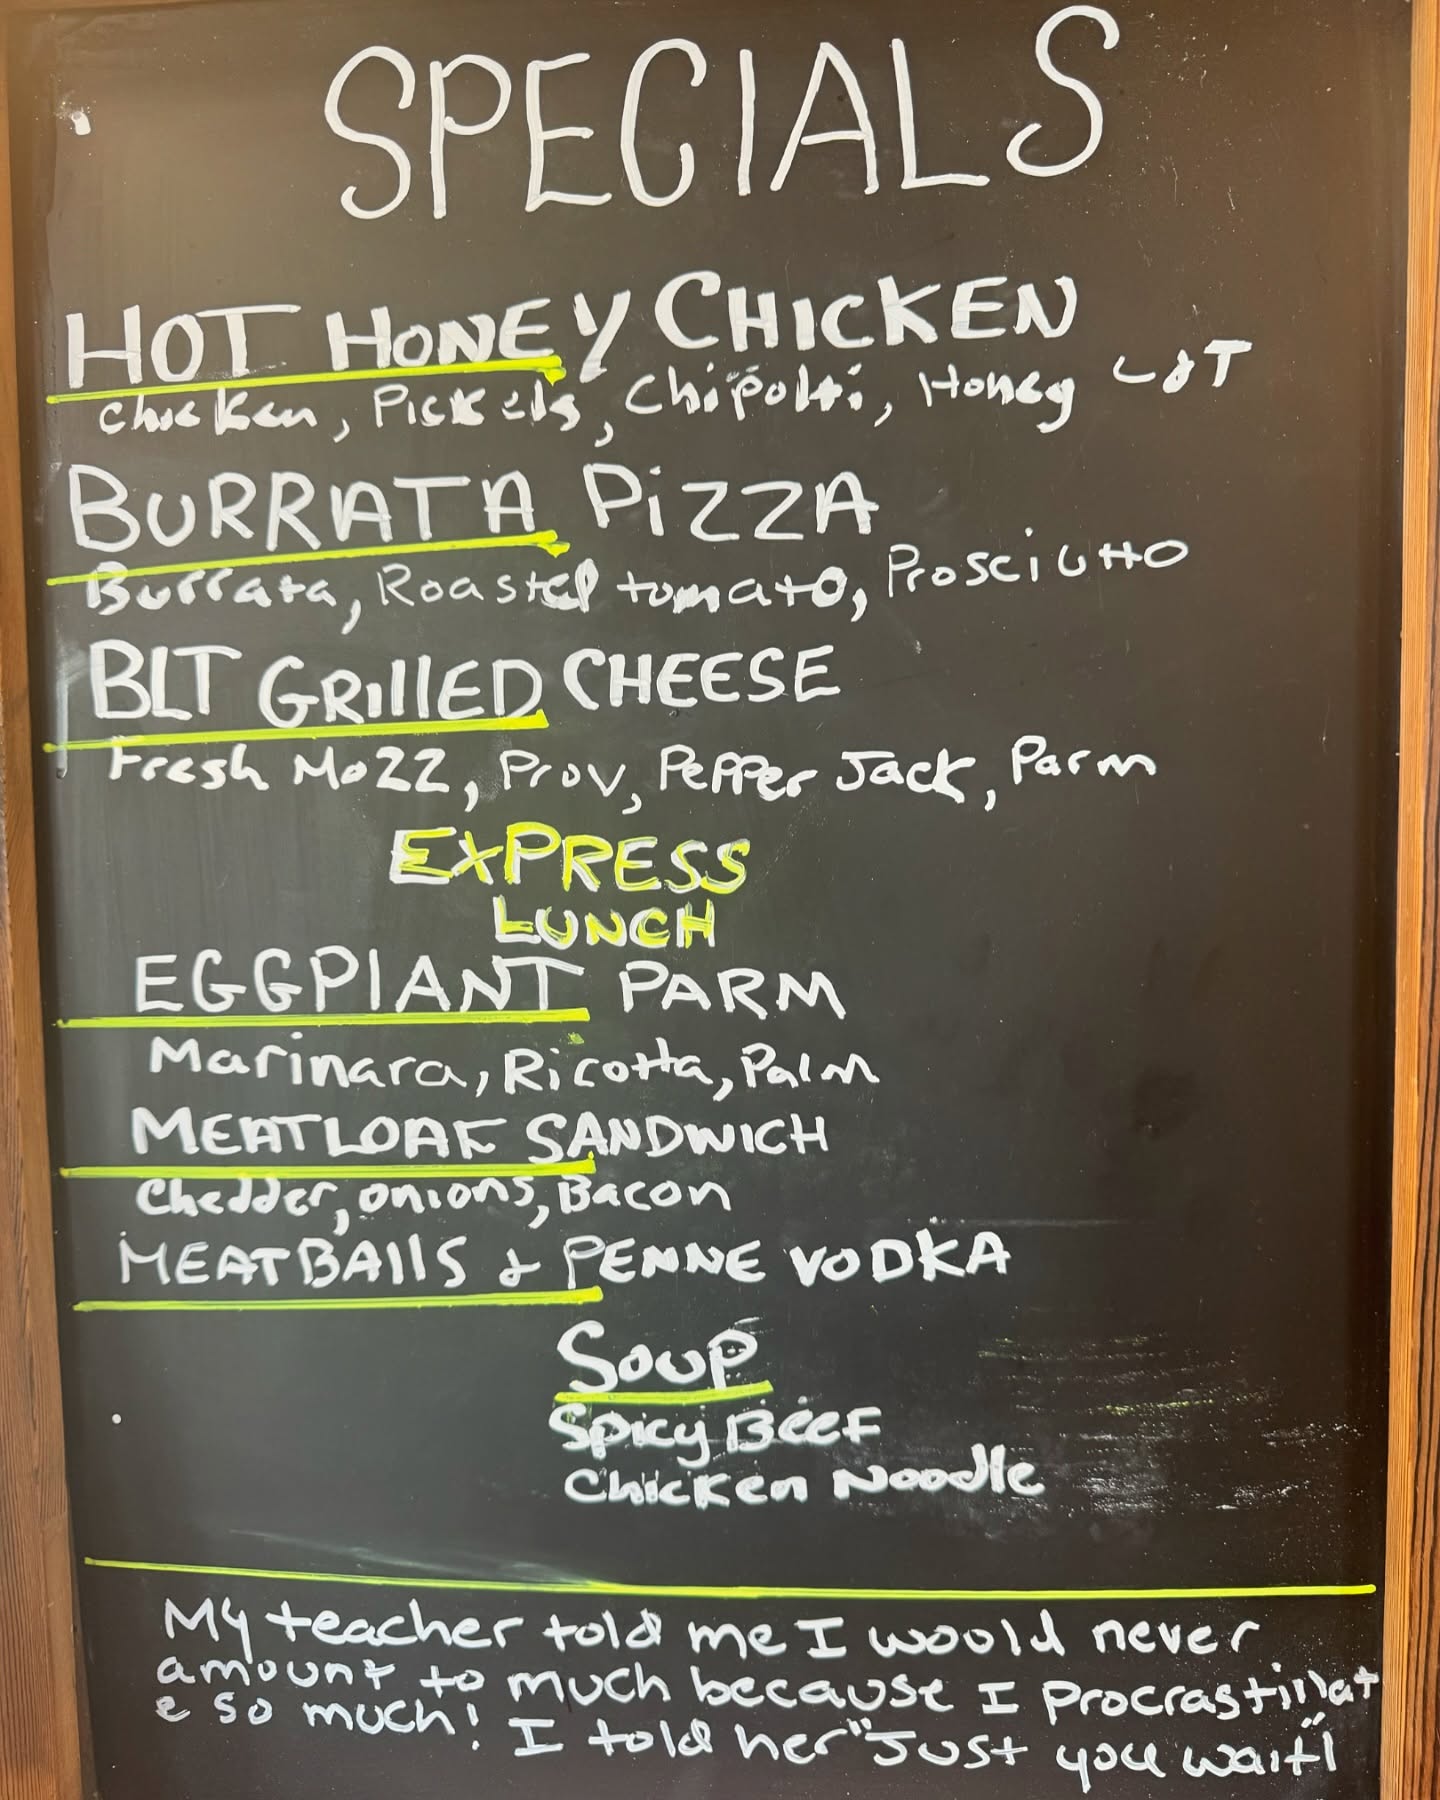 SPECIALS
HOT HONEY CHICKEN
Chicken, Pickels, Chipolti, Honey L&T
BURRATA PiZZA
Burrata, Roasted tomato, Prosciutto
BLT GRillED CHEESE
Fresh Mozz, Prov, Pepper Jack, Parm
EXPRESS
LUNCH
EGGPlANT PARM
Marinara, Ricotta, Parm
MEATLOAF SANDWICH
Chedder, onions, Bacon
MEATBAllS & PENNE VODKA
Soup
Spicy Beef
Chicken Noodle
My teacher told me I woold never
amount to much because I Procrastinat
e so much! I told her "Just you wait!"